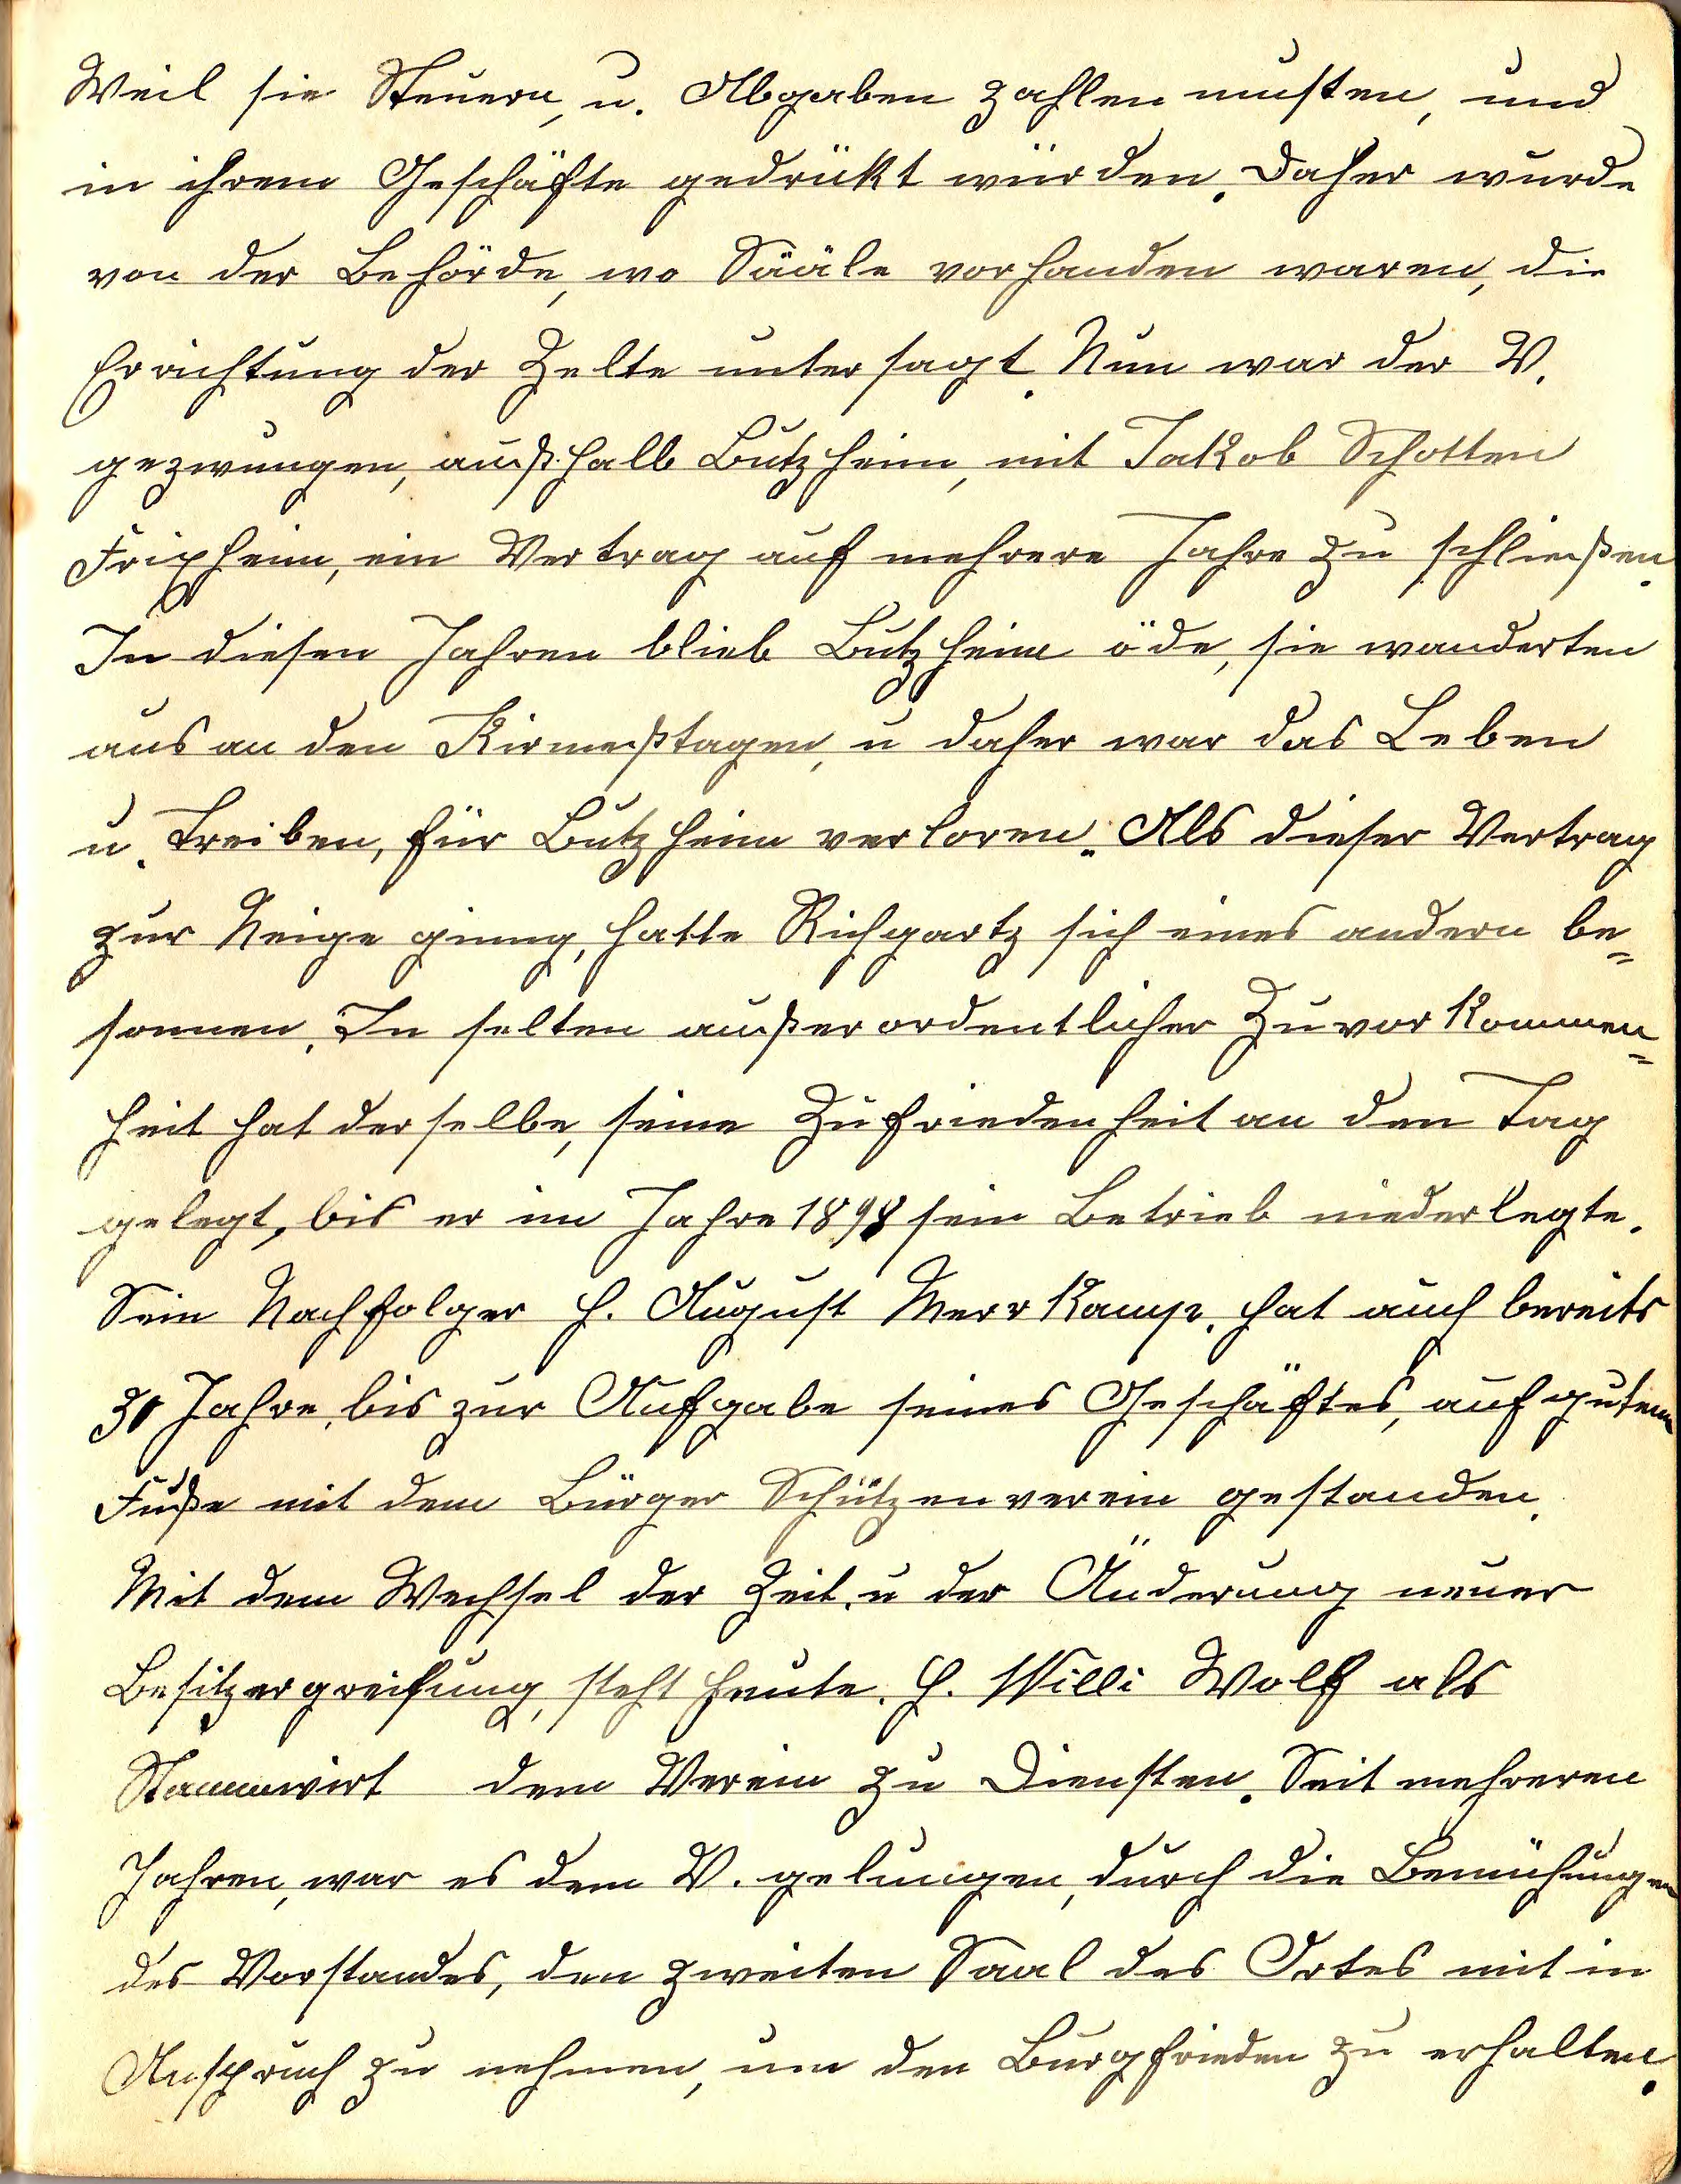 Weil sie Steuern, u. Abgaben zahlen musten, und
in ihrem Geschäfte gedrükt würden. Daher wurde
von der Behörde, wo Sääle vorhanden waren, die
Errichtung der Zelte untersagt. Nun war der V.
gezwungen, außhalb Butzheim, mit Jakob Schotten
Frixheim, ein Vertrag auf mehrere Jahre zu schließen.
In diesen Jahren blieb Butzheim öde, sie wanderten
aus an den Kirmeßtagen, u daher war das Leben
u. Treiben, für Butzheim verloren. Als dieser Vertrag
zur Neige ginng, hatte Richgartz sich eines andern be=
sonnen. In selten außerordentlicher Zuvorkommen=
heit hat derselbe, seine Zufriedenheit an den Tag
gelegt, bis er im Jahre 1898 sein Betrieb niederlegte.
Sein Nachfolger H. August Merrkamp. hat auch bereits
30 Jahre, bis zur Aufgabe seines Geschäftes, auf gutem
Fuße mit dem Bürger Schützenverein gestanden.
Mit dem Wechsel der Zeit. u der Änderung neuer
Besitzergreifung, steht heute. H. Willi Wolf als
Stammwirt dem Verein zu Diensten. Seit mehreren
Jahren, war es dem V. gelungen, durch die Bemühungen
des Vorstandes, den zweiten Saal des Ortes mit in
Anspruch zu nehmen, um den Burgfrieden zu erhalten.